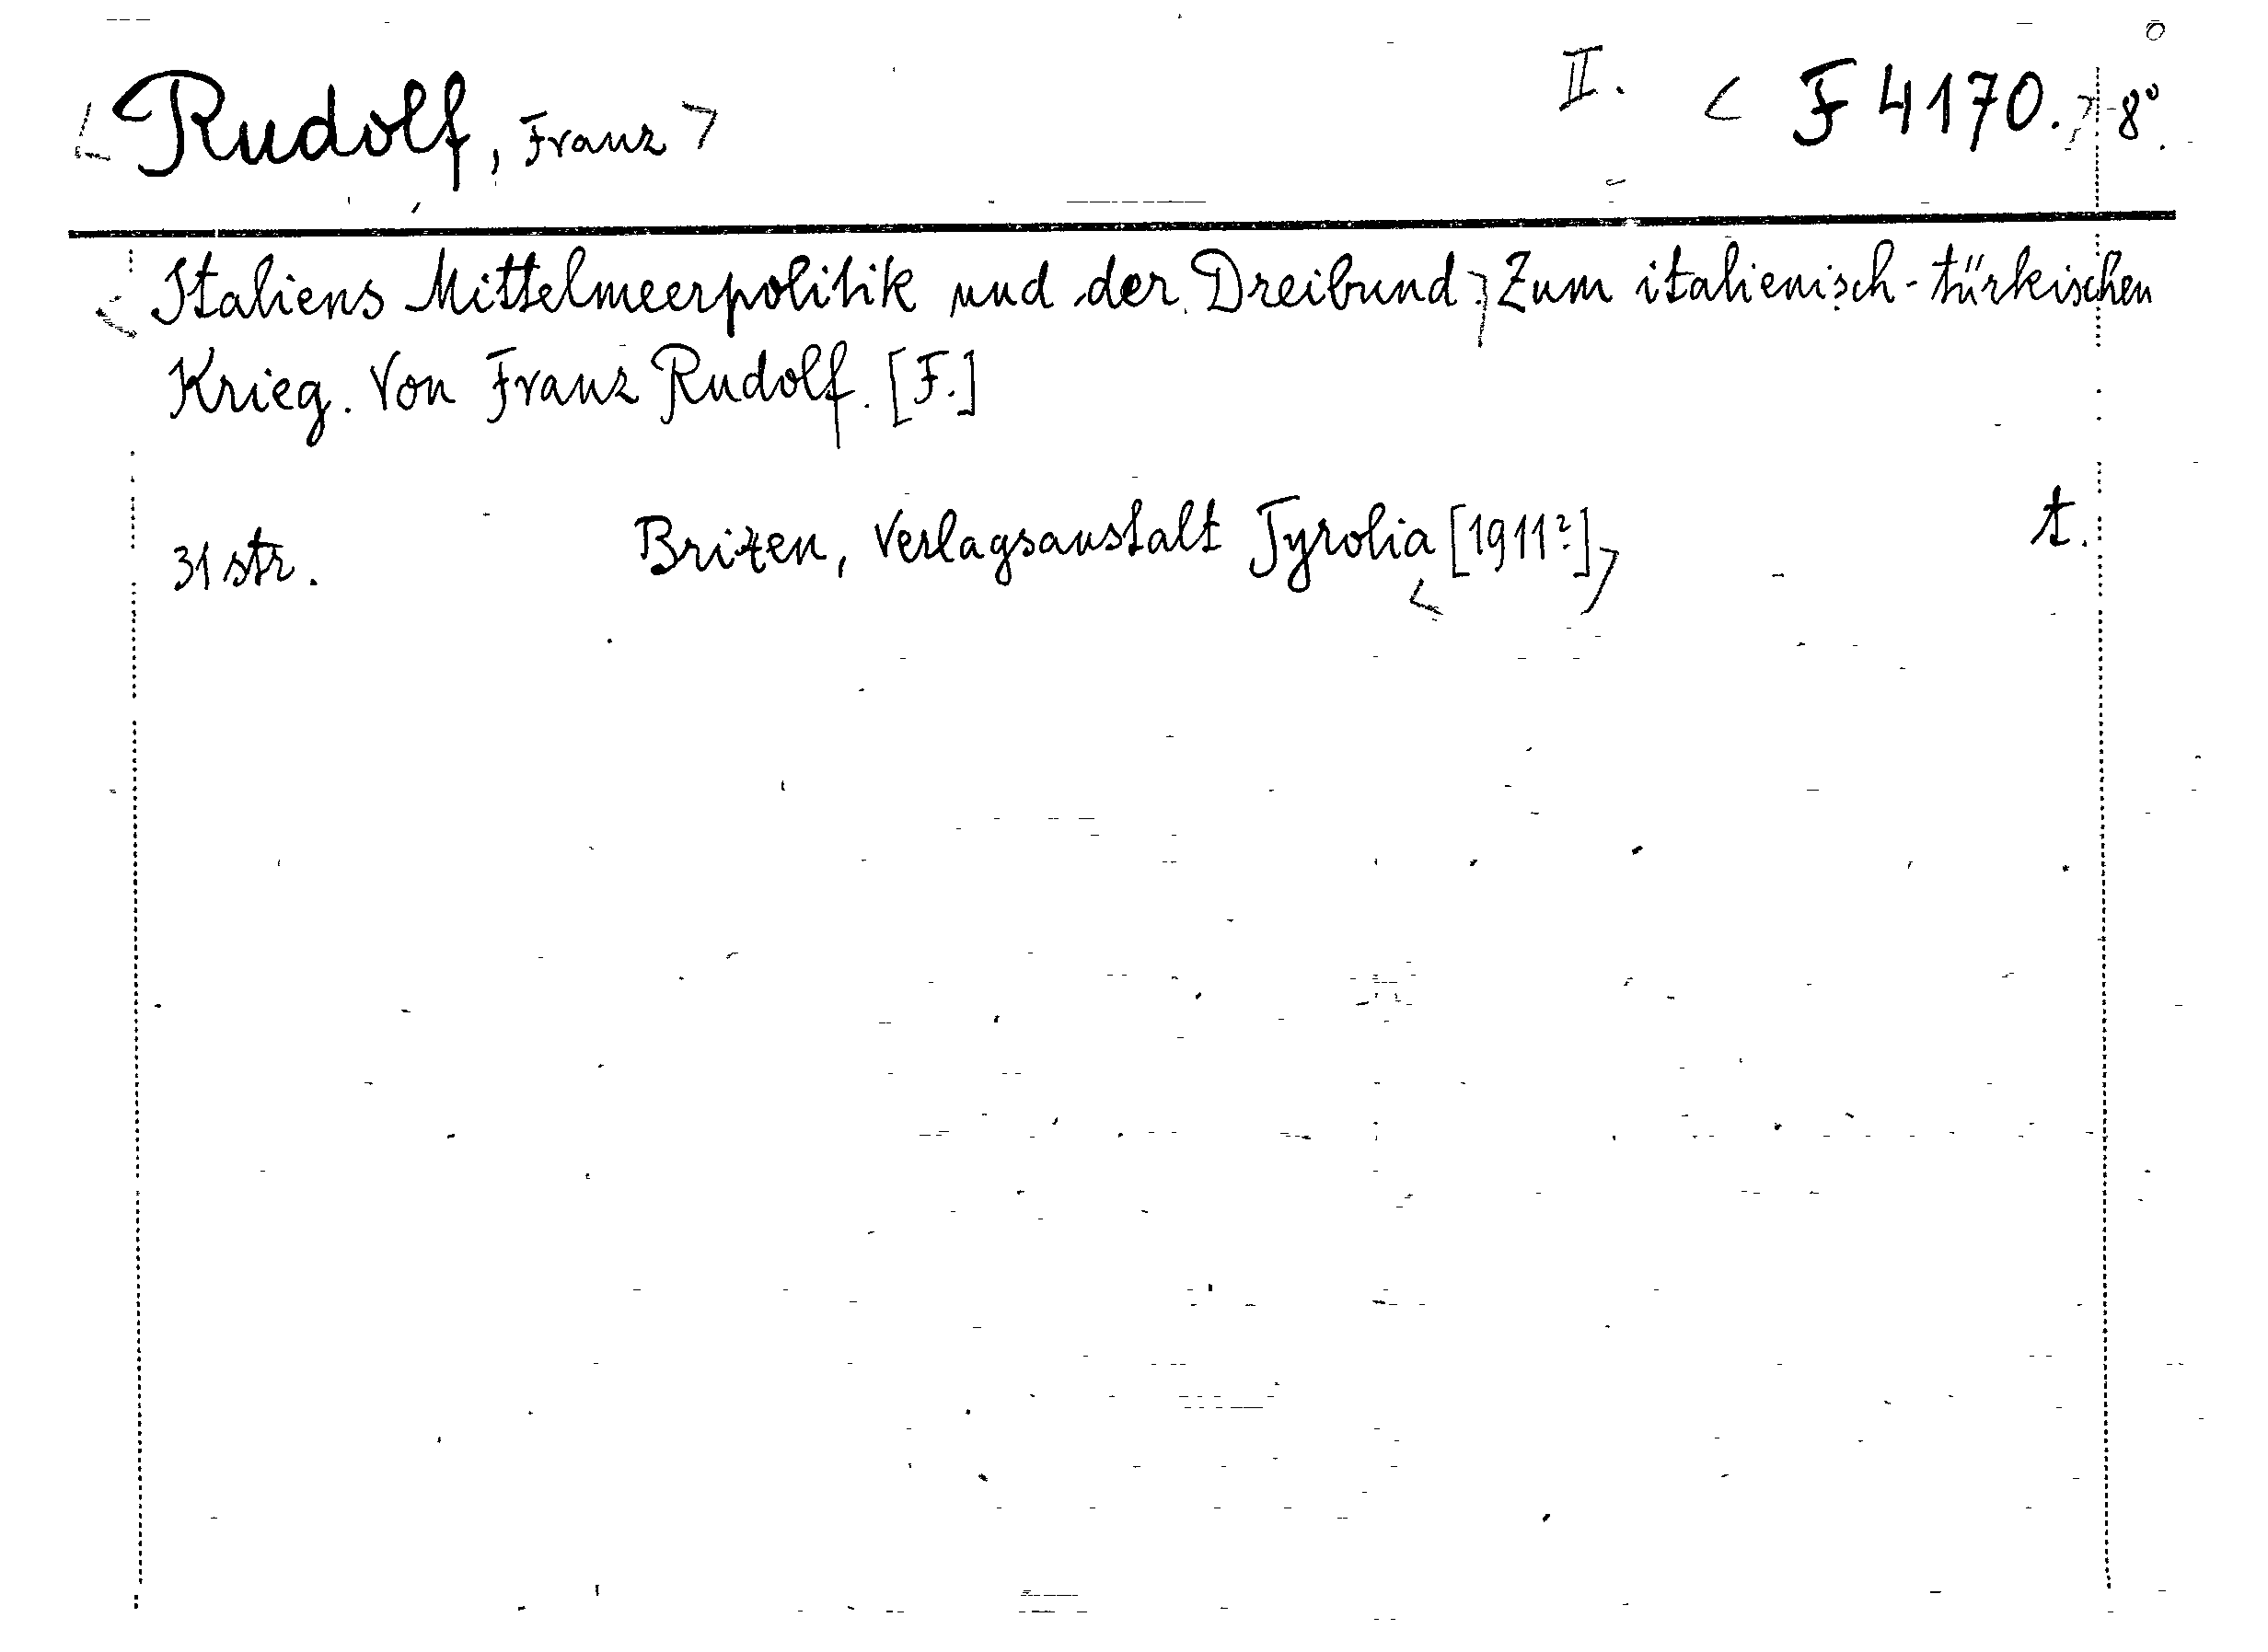 <Rudolf, Franz> II. <F 4170.> 8°.
<Italiens Mittelmeerpolitik und der Dreibund.> Zum italienisch-türkischen
Krieg. Von Franz Rudolf. [F.]
t.
31 str. Brixen, Verlagsanstalt Tyrolia <[1911?]>